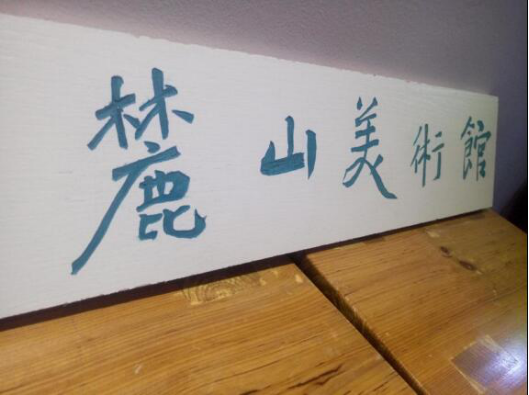 麓山美術館